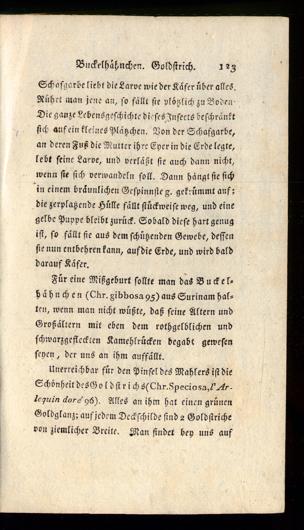 Buckelhähnchen. Goldstrich. 123
Schafgarbe liebt die Larve wie der Käfer über alles.
Rührt man jene an, so fällt sie plötzlich zu Boden.
Die ganze Lebensgeschichte dieses Insects beschränkt
sich auf ein kleines Plätzchen. Von der Schafgarbe,
an deren Fuß die Mutter ihre Eyer in die Erde legte,
lebt seine Larve, und verläßt sie auch dann nicht,
wenn sie sich verwandeln soll. Dann hängt sie sich
in einem bräunlichen Gespinnste g. gekrümmt auf:
die zerplatzende Hülle fällt stückweise weg, und eine
gelbe Puppe bleibt zurück. Sobald diese hart genug
ist, so fällt sie aus dem schützenden Gewebe, dessen
sie nun entbehren kann, auf die Erde, und wird bald
darauf Käfer.
Für eine Mißgeburt sollte man das Buckel-
hähnchen (Chr. gibbosa 95) aus Surinam hal-
ten, wenn man nicht wüßte, daß seine Altern und
Großältern mit eben dem rothgelblichen und
schwarzgefleckten Kamehlrücken begabt gewesen
seyen, der uns an ihm auffällt.
Unerreichbar für den Pinsel des Mahlers ist die
Schönheit des Goldstrichs (Chr. Speciosa, l'Ar-
lequin doré 96). Alles an ihm hat einen grünen
Goldglanz; auf jedem Deckschilde sind 2 Goldstriche
von ziemlicher Breite. Man findet bey uns auf